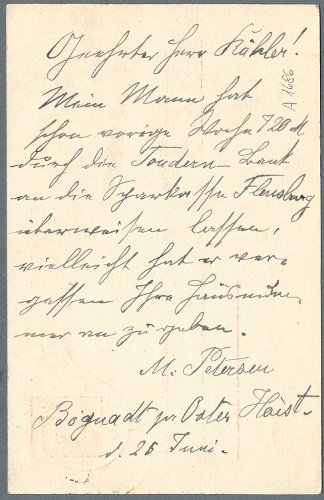 Geehrter Herr Kähler!
Mein Mann hat
schon vorige Woche 720 M
durch die Tondern-Bank
an die Sparkasse Flensburg
überweisen lassen,
vielleicht hat er ver-
gessen Ihre Hausnum-
mer an zu geben.
M. Petersen
per Oster Höist.
d. 25 Juni.
A 1686